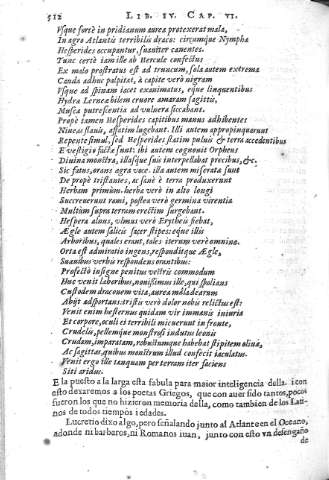 512 LIB. IV. CAP. VI.
Vsque fortè in pridianum aurea protexerat mala,
In agro Atlantis terribilis draco: circumque Nympha
Hesperides occupantur, suauiter canentes.
Tunc certè iam ille ab Hercule confectus
Ex malo prostratus est ad truncum, sola autem extrema
Cauda adhuc palpitat, à capite verò nigram
Vsque ad spinam iacet exanimatus, eque linquentibus
Hydra Lernea bilem cruore amaram sagittis,
Musca putrescentia ad vulnera siccabant.
Propè tamen Hesperides capitibus manus adhibentes
Niueas flauis, assatim lugebant. Illi autem appropinquarunt
Repente simul, sed Hesperides statim puluis & terra accedentibus
E vestigio facta sunt: ibi autem cognouit Orpheus
Diuina monstra, illasque suis interpellabat precibus, &c.
Sic fatus, orans agra voce. illa autem miserata sunt
De propè tristante, ac sanè è terra produxerunt
Herbam primùm. herba verò in alto longi
Succreuerunt rami, postea verò germina virentia
Multùm supra terram erectim surgebant.
Hespera alnus, vlmus verò Erytheis fiebat,
Ægle autem salicis sacer stipes: eque illis
Arboribus, quales erant, tales iterum verè omnino.
Orta est admiratio ingens, responditque Ægle,
Suauibus verbis respondens orantibus:
Profectò insigne penitus vestris commodum
Huc venit laboribus, nonissimus ille, qui spolians
Custodem draconem vita, aurea mala dearum
Abijt adsportans: tristis verò dolor nobis relictus est:
Venit enim hesternus quidam vir immanis iniuria
Et corpore, oculi ei terribili micuerunt in fronte,
Crudelis, pellemque monstrosi indutus leonis
Crudam, imparatam, robustumque habebat stipitem oliua,
Ac sagittas, quibus monstrum illud confecit iaculatus.
Venit ergo ille tanquam per terram iter faciens
Siti aridus.
Ela puesto a la larga esta fabula para maior inteligencia della. i con
esto dexaremos a los poetas Griegos, que con auer sido tantos, pocos
fueron los que no hizieron memoria della, como tambien de los Lati-
nos de todos tiempos i edades.
Lucretio dixo algo, pero señalando junto al Atlante en el Oceano,
adonde ni barbaros, ni Romanos iuan, junto con esto va desengaño
de